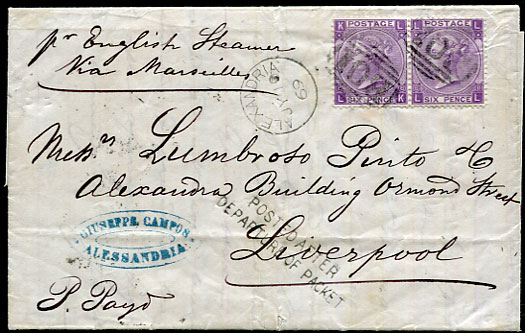 pr English Steamer
Via Marseilles
K POSTAGE L
SIX PENCE
L K
L POSTAGE L
SIX PENCE
L L
ALEXANDRIA
69
Messrs Lumbroso Pinto & C
Alexandra Building Ormond Street
Liverpool
POSTED AFTER
DEPARTURE OF PACKET
GIUSEPPE CAMPOS
ALESSANDRIA
P. Payd